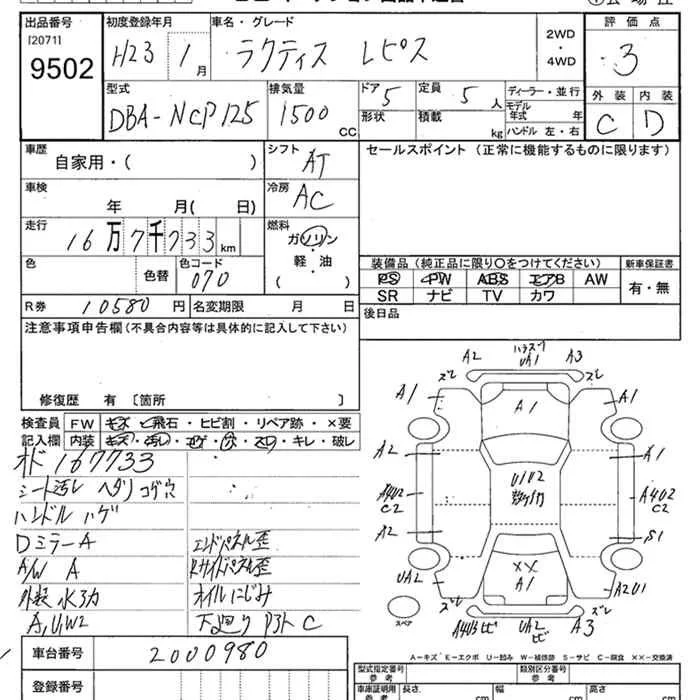 出品番号
[20711
9502
初度登録年月
H23 1月
車名・グレード
ラクティス レピス
2WD
・
4WD
評価点
3
外装 内装
C D
型式
DBA-NCP125
排気量
1500 CC
ドア 5
形状
定員 5 人
積載 kg
ディーラー・並行
モデル年式 年
ハンドル 左・右
車歴
自家用・( )
シフト
AT
セールスポイント (正常に機能するものに限ります)
車検
年 月( 日)
冷房
AC
走行
16万7千733km
燃料
ガソリン
・
軽・油
・
( )
色
色替
色コード
070
装備品 (純正品に限り○をつけてください)
PS PW ABS エアB AW
SR ナビ TV カワ
新車保証書
有・無
R券 10580円
名変期限 月 日
後日品
注意事項申告欄 (不具合内容等は具体的に記入して下さい)
修復歴 有 〔箇所 〕
検査員記入欄
FW キズ・飛石・ヒビ割・リペア跡・×要
内装 キズ・汚レ・コゲ・穴・スレ・キレ・破レ
オド 167733
シート汚レ ヘタリ コゲ穴
ハンドル ハゲ
DミラーA
エンドパネル歪
A/W A
Rサイドパネル歪
外装 水シカ
オイルにじみ
A,U,W2
下廻り P3ト C
A2 UA1 A3
ズレ ズレ
A1 A1 A1
A2 A1
U1U2
A4U2 A4U2
C2 C2
A2 S1
××
A1
UA2 A2U1
ズレ ズレ
スペア
A4U3 ヒビ UA2 ヒビ A3
A-キズ E-エクボ U-凹み W-補修跡 S-サビ C-腐食 ××-交換済
車台番号
2000980
登録番号
型式指定番号
参考
類別区分番号
参考
車庫証明用
参考
長さ cm 幅 cm 高さ cm